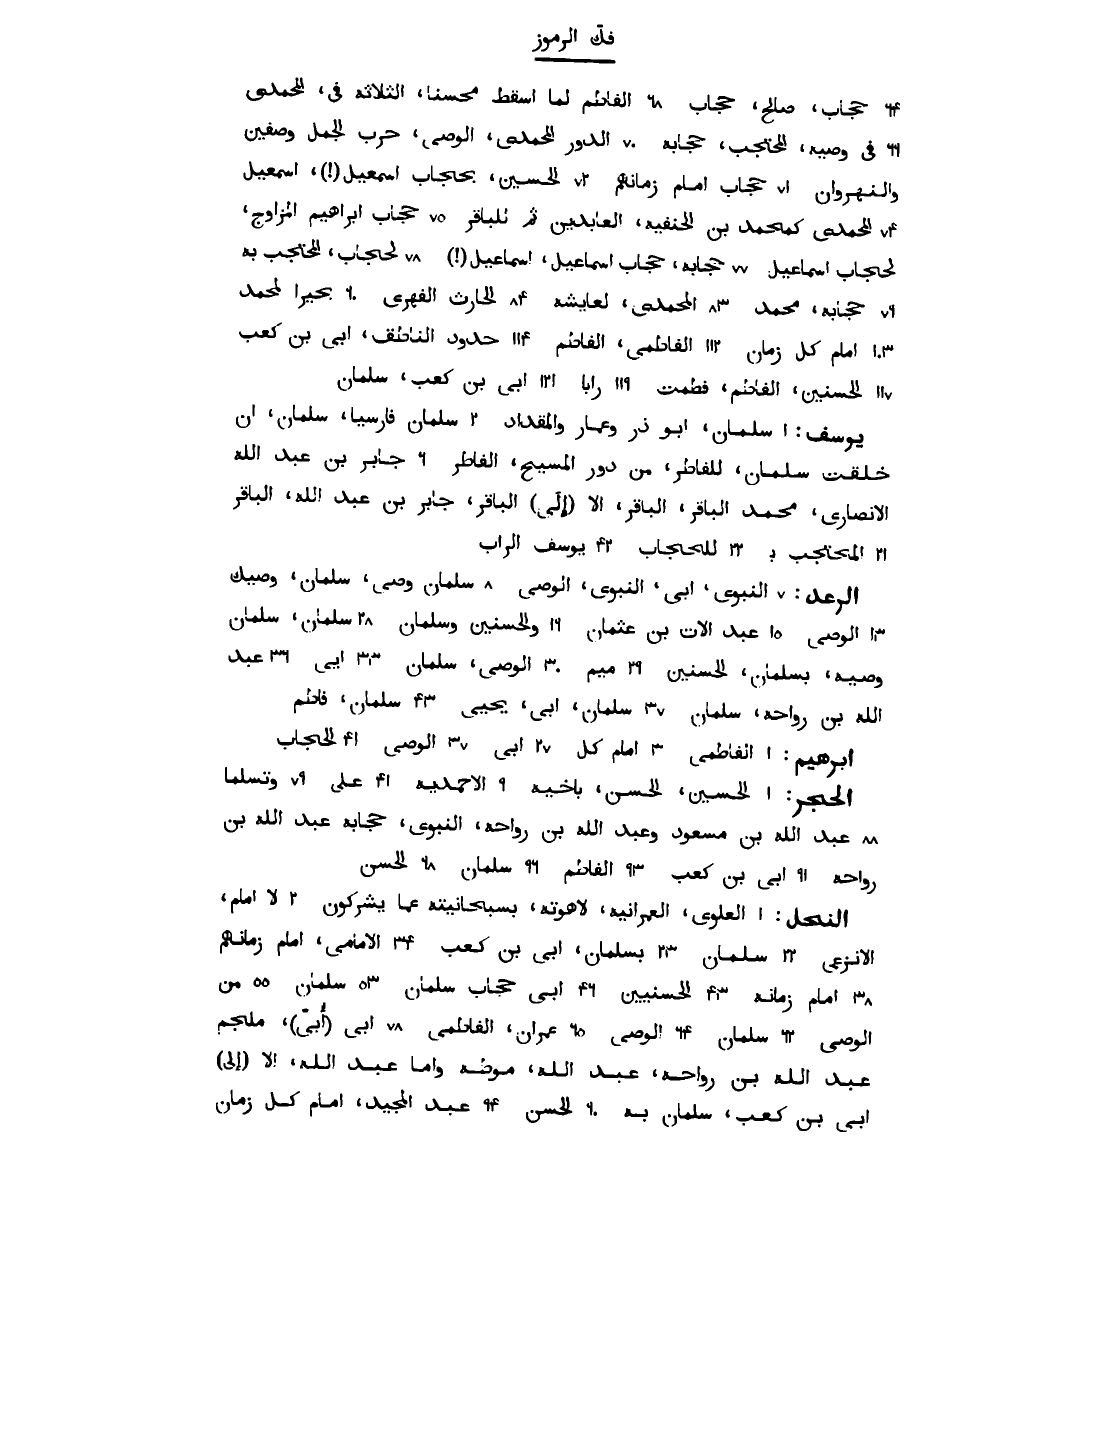 فكّ الرموز
٦٤ حجاب، صالح، حجاب ٦٨ القائم لما اسقط محسنا، الثلاثه في، المحمدى
٦٩ في وصيه، المحتجب، حجابه ٧٠ الدور المحمدى، الوصى، حرب الجمل وصفين
والنهروان ٧١ حجاب امام زمانهم ٧٢ الحسين، بحجاب اسمعيل(!)، اسمعيل
٧٤ المحمدى كمحمد بن الحنفيه، العابدين ثم للباقر ٧٥ حجاب ابراهيم المزاوج،
لحجاب اسماعيل ٧٧ حجابه، حجاب اسماعيل، اسماعيل(!) ٧٨ لحجاب، المحتجب به
٧٩ حجابه، محمد ٨٣ المحمدى، لعايشه ٨٤ الحارث الفهرى ٩٠ بحيرا لمحمد
١٠٣ امام كل زمان ١١٢ الفاطمى، القائم ١١٤ حدود الناطق، ابى بن كعب
١١٧ الحسنين، القائم، فطمت ١١٩ رابا ١٢١ ابى بن كعب، سلمان
يوسف: ١ سلمان، ابو ذر وعمار والمقداد ٢ سلمان فارسيا، سلمان، ان
خلقت سلمان، للفاطر، من دور المسيح، الفاطر ٦ جابر بن عبد الله
الانصارى، محمد الباقر، الباقر، الا (إلّى) الباقر، جابر بن عبد الله، الباقر
٢١ المحتجب بـ ٢٢ للحجاب ٤٢ يوسف الراب
الرعد: ٧ النبوى، ابى، النبوى، الوصى ٨ سلمان وصى، سلمان، وصيك
١٣ الوصى ١٥ عبد الات بن عثمان ١٩ والحسنين وسلمان ٢٨ سلمان، سلمان
وصيه، بسلمان، الحسنين ٢٩ ميم ٣٠ الوصى، سلمان ٣٣ ابى ٣٦ عبد
الله بن رواحه، سلمان ٣٧ سلمان، ابى، يحيى ٤٣ سلمان، قائم
ابرهيم: ١ الفاطمى ٣ امام كل ٢٧ ابى ٣٧ الوصى ٤١ الحجاب
الحجر: ١ الحسين، الحسن، باخيه ٩ الاحمديه ٤١ على ٧٩ وتسلما
٨٨ عبد الله بن مسعود وعبد الله بن رواحه، النبوى، حجابه عبد الله بن
رواحه ٩١ ابى بن كعب ٩٣ القائم ٩٦ سلمان ٩٨ الحسن
النحل: ١ العلوى، العمرانيه، لاهوته، بسبحانيته عما يشركون ٢ لا امام،
الانزعى ٢٢ سلمان ٢٣ بسلمان، ابى بن كعب ٣٤ الامامى، امام زمانهم
٣٨ امام زمانه ٤٣ الحسنيين ٤٦ ابى حجاب سلمان ٥٣ سلمان ٥٥ من
الوصى ٦٢ سلمان ٦٤ الوصى ٦٥ عمران، الفاطمى ٧٨ ابى (أُبىّ)، ملجم
عبد الله بن رواحه، عبد الله، موضه واما عبد الله، الا (إلى)
ابى بن كعب، سلمان به ٩٠ الحسن ٩٤ عبد المجيد، امام كل زمان